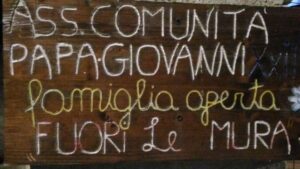 ASS. COMUNITÀ
PAPA GIOVANNI XXIII
famiglia aperta
"FUORI Le MURA"